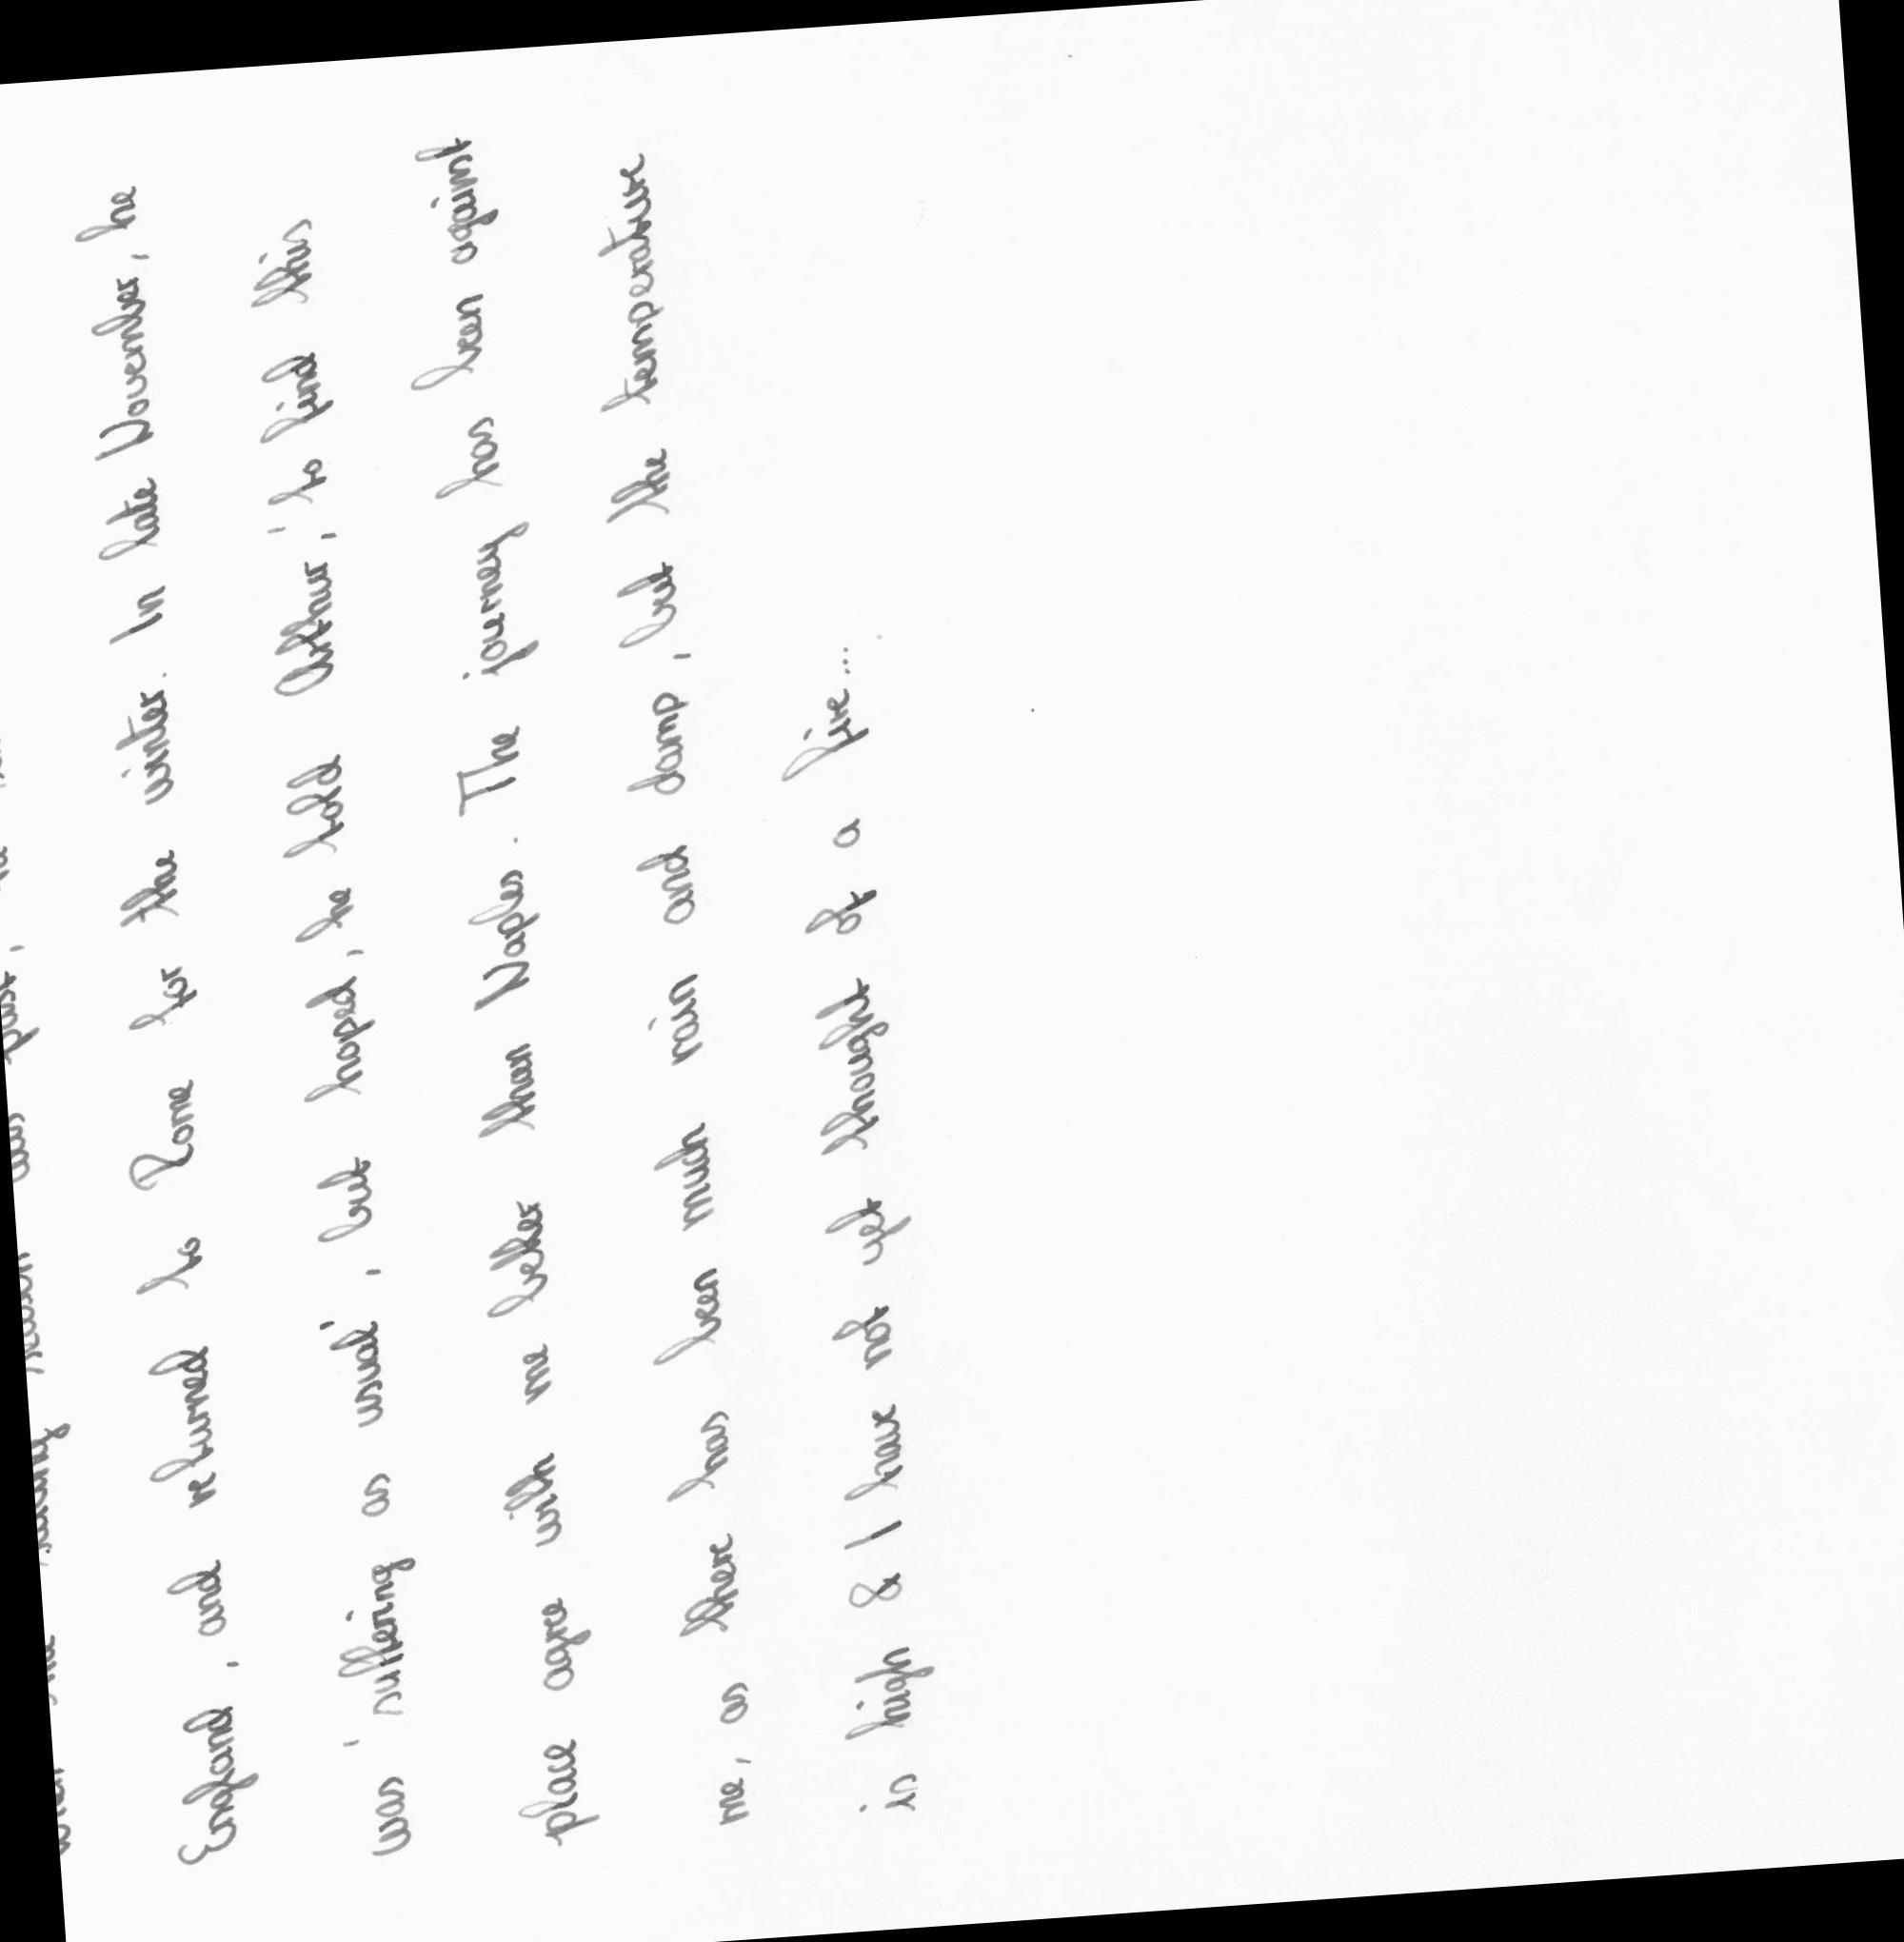 England, and returned to Rome for the winter. In late November, he
was 'suffering as usual', but hoped, he told Arthur, 'to find this
place agre with me better than Naples. The journey has been against
me, as there has been much rain and damp, but the temperature
is high & I have not yet thought of a fire....